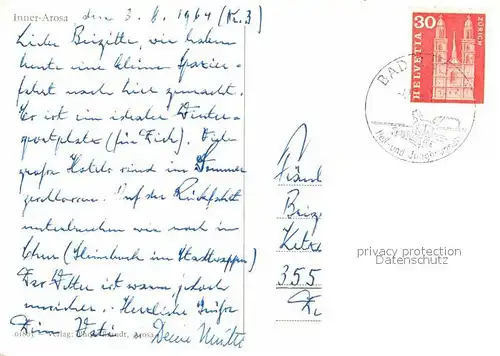 Inner-Arosa den 3. 8. 1964 (Nr. 3)
Liebe Brigitte, wir haben
heute eine kleine Spazier-
fahrt nach hier gemacht.
Es ist ein idealer Winter-
sportplatz (für Dich). Viele
große Hotels sind im Sommer
geschlossen. Auf der Rückfahrt
unterbrechen wir noch in
Chur (Steinbock im Stadtwappen)
Das Wetter ist warm, jedoch
unsicher. Herzliche Grüße
Dein Vati Deine Mutti
Verlag: Arosa
30
ZÜRICH
HELVETIA
BAD
Heil- und Jungbrunnen
Fräul
Brig
355
privacy protection
Datenschutz